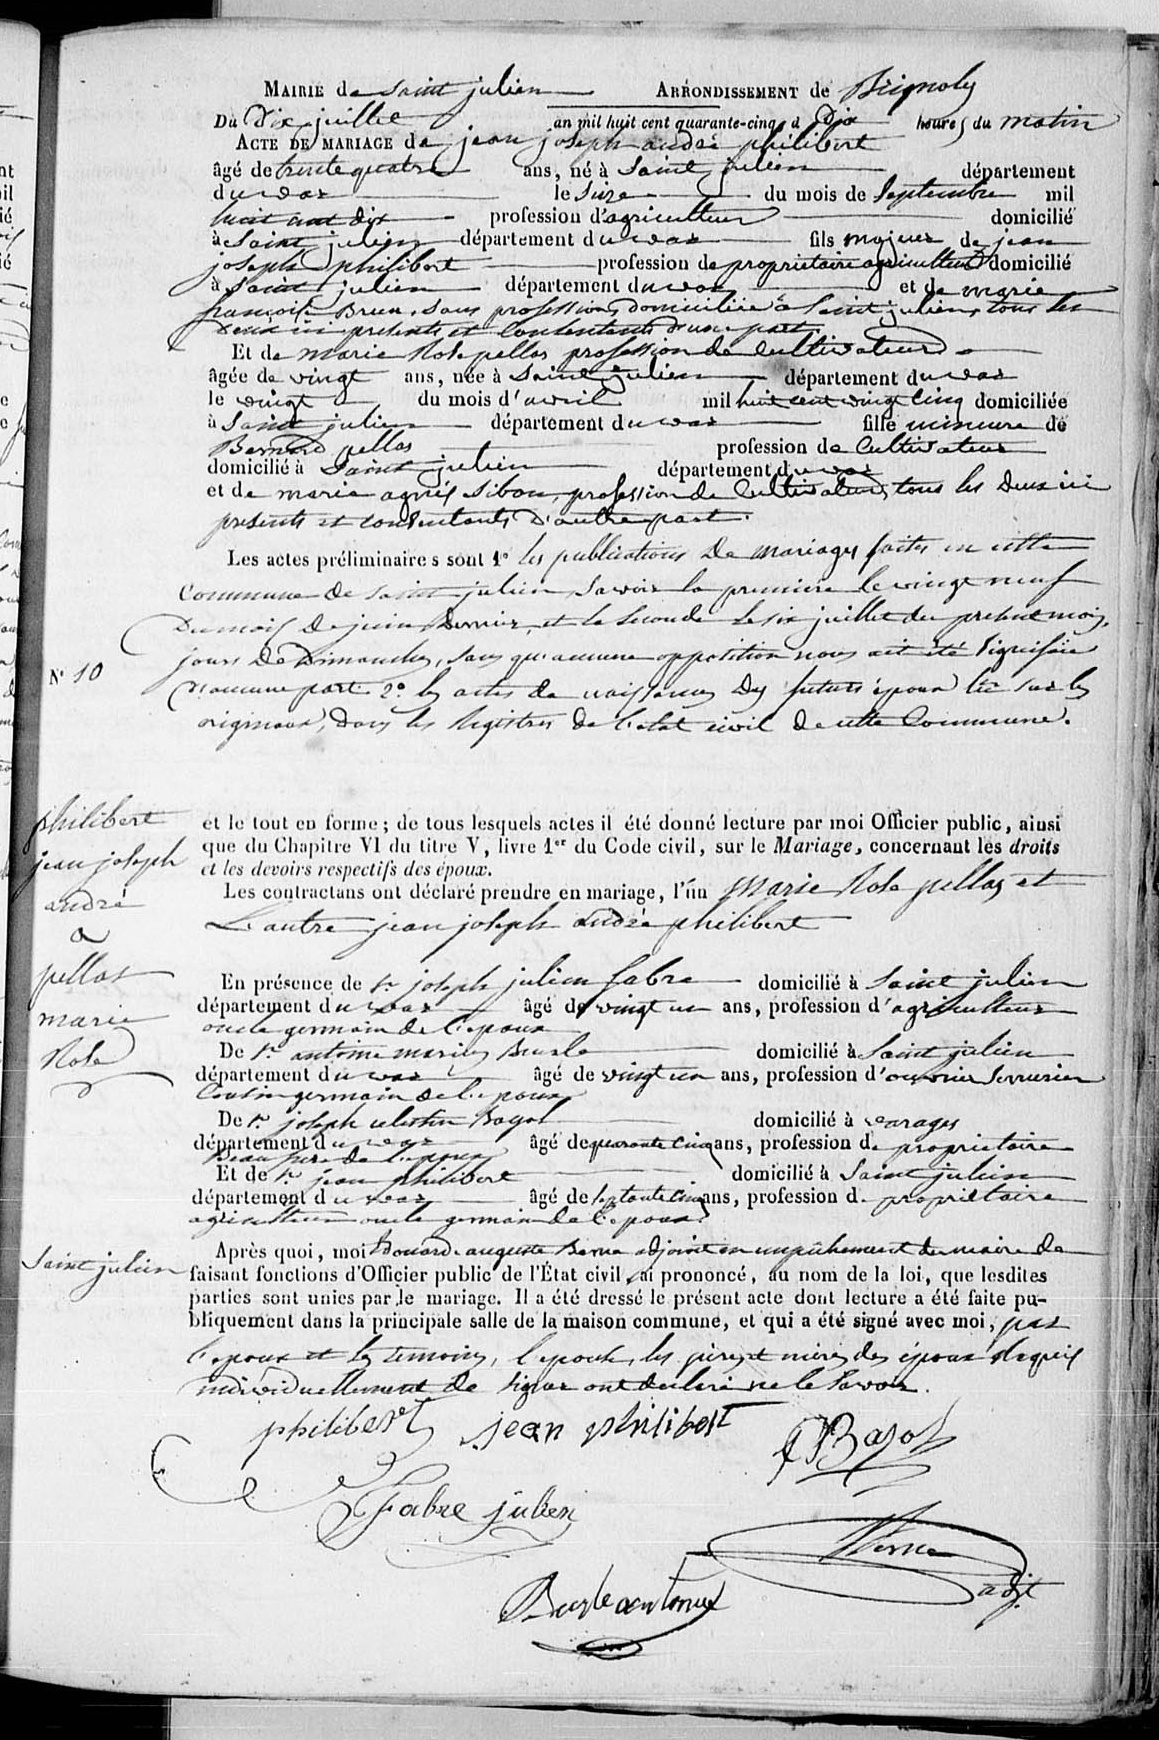 MAIRIE de saint julien ARRONDISSEMENT de Brignoles
Du Dix juillet an mil huit cent quarante-cinq à Dix heures du matin
ACTE DE MARIAGE de jean joseph andré philibert
âgé de trente quatre ans, né à Saint julien département
du var le Seize du mois de Septembre mil
huit cent dix profession d'agriculteur domicilié
à Saint julien département du var fils majeur de jean
joseph philibert profession de proprietaire agriculteur domicilié
à Saint julien département du var et de marie
françoise Brun, sans profession, domiciliée à Saint julien, tous les
deux ici présents et Consentents d'une part.
Et de marie Rose pellas profession de Cultivateur
âgée de vingt ans, née à Saint julien département du var
le vingt du mois d'avril mil huit cent vingt cinq domiciliée
à Saint julien département du var fille mineure de
Bernard pellas profession de Cultivateur
domicilié à Saint julien département du var
et de marie agnès Sibon, profession de Cultivateur, tous les Deux ici
présents et consentants, D'autre part.
Les actes préliminaires sont 1° les publications De mariages faites en cette
Commune de saint julien, Savoir la première le vingt neuf
Du mois De juin Dernier, et la Seconde le six juillet du présent mois,
jours De Dimanches, sans qu'aucune opposition nous ait été Signifiée
N° 10
d'aucune part. 2° les actes de naissances Des futurs époux lu sur les
originaux, Dans les Registres de l'état civil de cette Commune.
philibert
jean joseph
andré
a
pellas
marie
Rose
et le tout en forme ; de tous lesquels actes il été donné lecture par moi Officier public, ainsi
que du Chapitre VI du titre V, livre 1er du Code civil, sur le Mariage, concernant les droits
et les devoirs respectifs des époux.
Les contractans ont déclaré prendre en mariage, l'un Marie Rose pellas et
L'autre jean joseph andré philibert
En présence de Sr joseph julien fabre domicilié à Saint julien
département du var âgé de vingt un ans, profession d'agriculteur
oncle germain de l'epoux
De Sr antoine marius Burle domicilié à Saint julien
département du var âgé de vingt un ans, profession d'ouvrier Serrurier
Cousin germain de l'epoux
De Sr joseph celestin Bagol domicilié à varages
département du var âgé de quarante Cinq ans, profession de proprietaire
Beau frere de l'epoux
Et de Sr jean philibert domicilié à Saint julien
département du var âgé de Septante cinq ans, profession de proprietaire
agriculteur oncle germain de l'epoux.
Saint julien
Après quoi, moi auguste Berne adjoint en empêchement du maire de
faisant fonctions d'Officier public de l'État civil, ai prononcé, au nom de la loi, que lesdites
parties sont unies par le mariage. Il a été dressé le présent acte dont lecture a été faite pu-
bliquement dans la principale salle de la maison commune, et qui a été signé avec moi, par
l'epoux et les temoins, l'epouse, les pères et mères des époux Requis
individuellement de Signer ont déclaré ne le Savoir.
philibert jean philibert Bagol
Fabre julien
Berne
adjt
Burle antoine